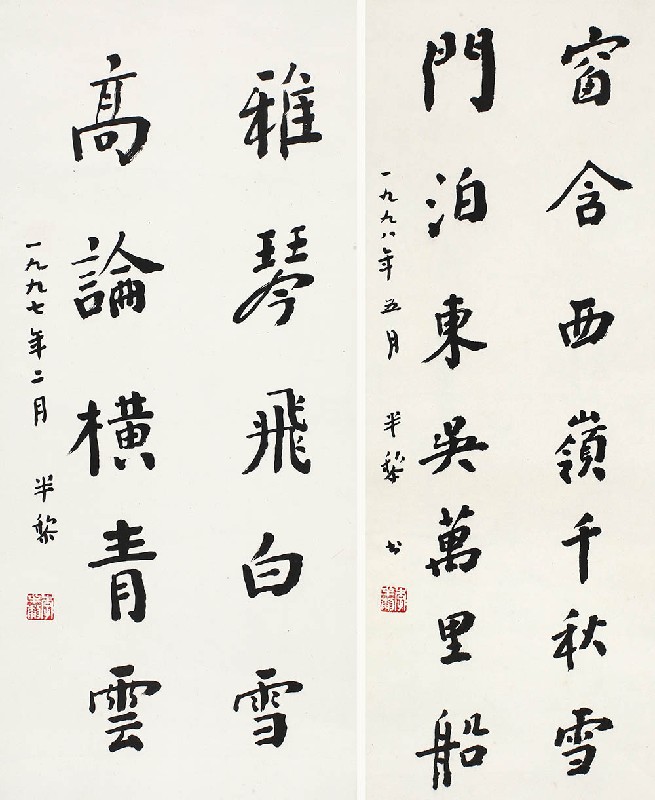 窗含西嶺千秋雪
門泊東吳萬里船
一九九八年五月 半黎 书
雅琴飛白雪
高論橫青雲
一九九七年二月 半黎